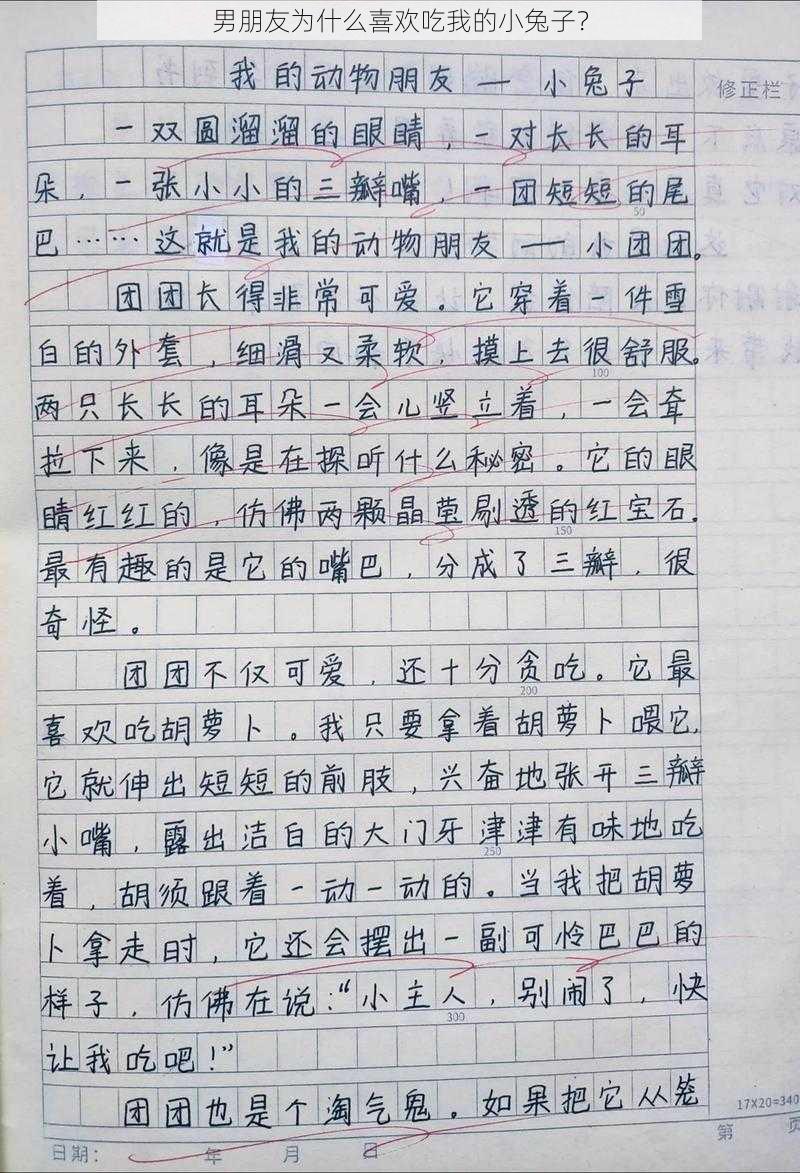 男朋友为什么喜欢吃我的小兔子?
我的动物朋友——小兔子
修正栏
一双圆溜溜的眼睛，一对长长的耳
朵，一张小小的三瓣嘴，一团短短的尾
50
巴……这就是我的动物朋友——小团团。
团团长得非常可爱。它穿着一件雪
白的外套，细滑又柔软，摸上去很舒服。
100
两只长长的耳朵一会儿竖立着，一会耷
拉下来，像是在探听什么秘密。它的眼
睛红红的，仿佛两颗晶莹剔透的红宝石。
150
最有趣的是它的嘴巴，分成了三瓣，很
奇怪。
团团不仅可爱，还十分贪吃。它最
200
喜欢吃胡萝卜。我只要拿着胡萝卜喂它，
它就伸出短短的前肢，兴奋地张开三瓣
小嘴，露出洁白的大门牙津津有味地吃
250
着，胡须跟着一动一动的。当我把胡萝
卜拿走时，它还会摆出一副可怜巴巴的
样子，仿佛在说：“小主人，别闹了，快
300
让我吃吧！”
团团也是个淘气鬼。如果把它从笼
17X20=340
日期： 年 月 日
第 页